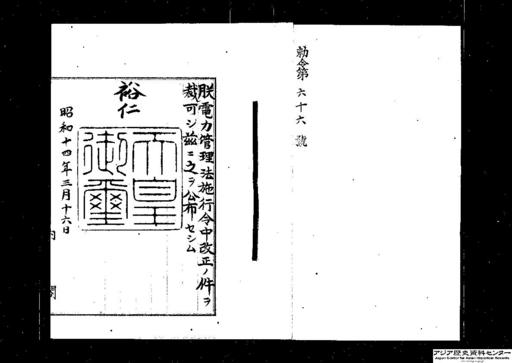 勅令第六十六號
朕電力管理法施行令中改正ノ件ヲ
裁可シ茲ニ之ヲ公布セシム
裕仁
天皇御璽
昭和十四年三月十六日
内閣
アジア歴史資料センター
Japan Center for Asian Historical Records